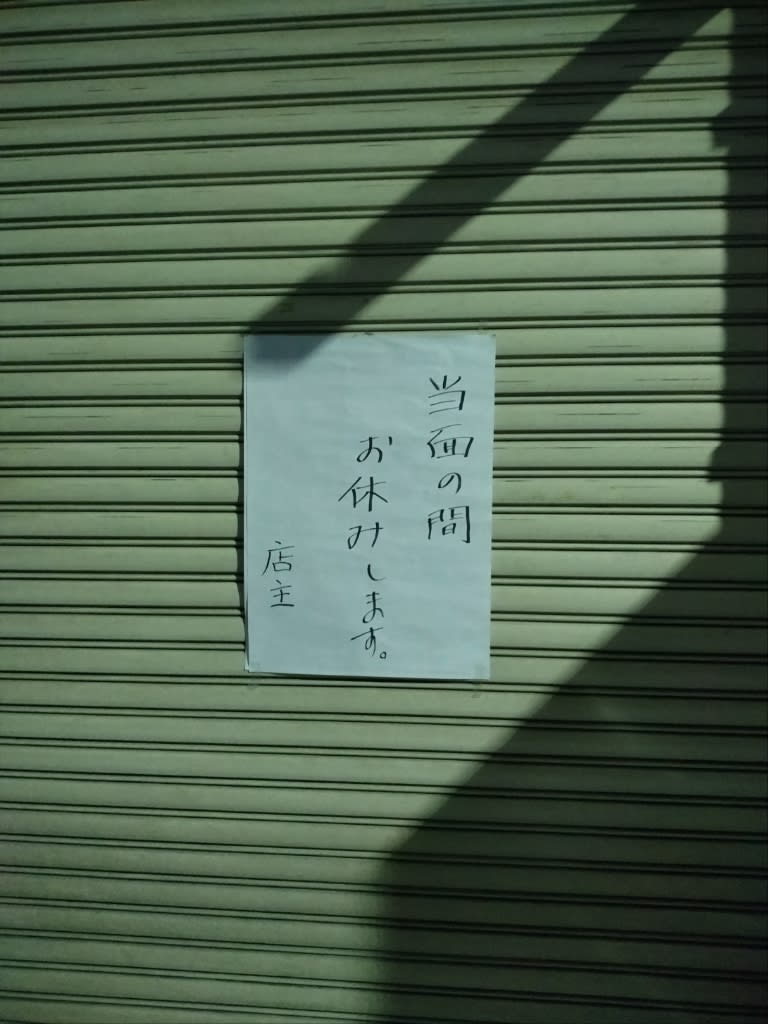 当面の間
お休みします。
店主